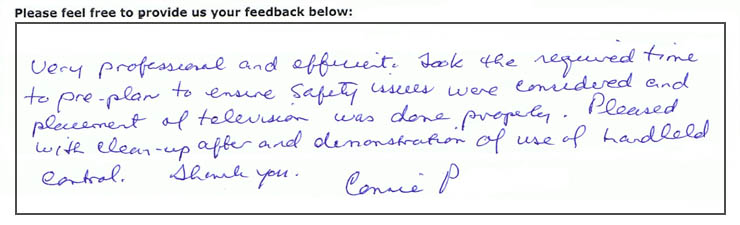 Please feel free to provide us your feedback below:
Very professional and efficient. Took the required time
to pre-plan to ensure safety issues were considered and
placement of television was done properly. Pleased
with clean-up after and demonstration of use of handheld
control. Thank you. Connie P